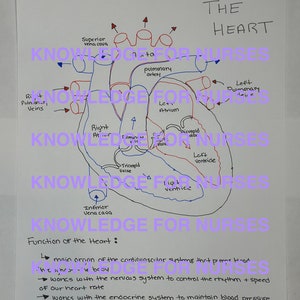 THE
HEART
Superior
Vena cava
Aorta
KNOWLEDGE FOR NURSES
pulmonary
artery
KNOWLEDGE FOR NURSES
Right
Pulmonary
Veins
Left
Pulmonary
Left
Atrium
Right
Atrium
KNOWLEDGE FOR NURSES
Bicuspid
valve
Left
ventricle
Tricuspid
Valve
KNOWLEDGE FOR NURSES
Right
Ventricle
Inferior
Vena cava
KNOWLEDGE FOR NURSES
Function of the Heart:
↳ main organ of the cardiovascular systems that pumps blood
KNOWLEDGE FOR NURSES
body
↳ works with the nervous system to control the rhythm + speed
of our heart rate
↳ works with the endocrine system to maintain blood pressure
KNOWLEDGE FOR NURSES